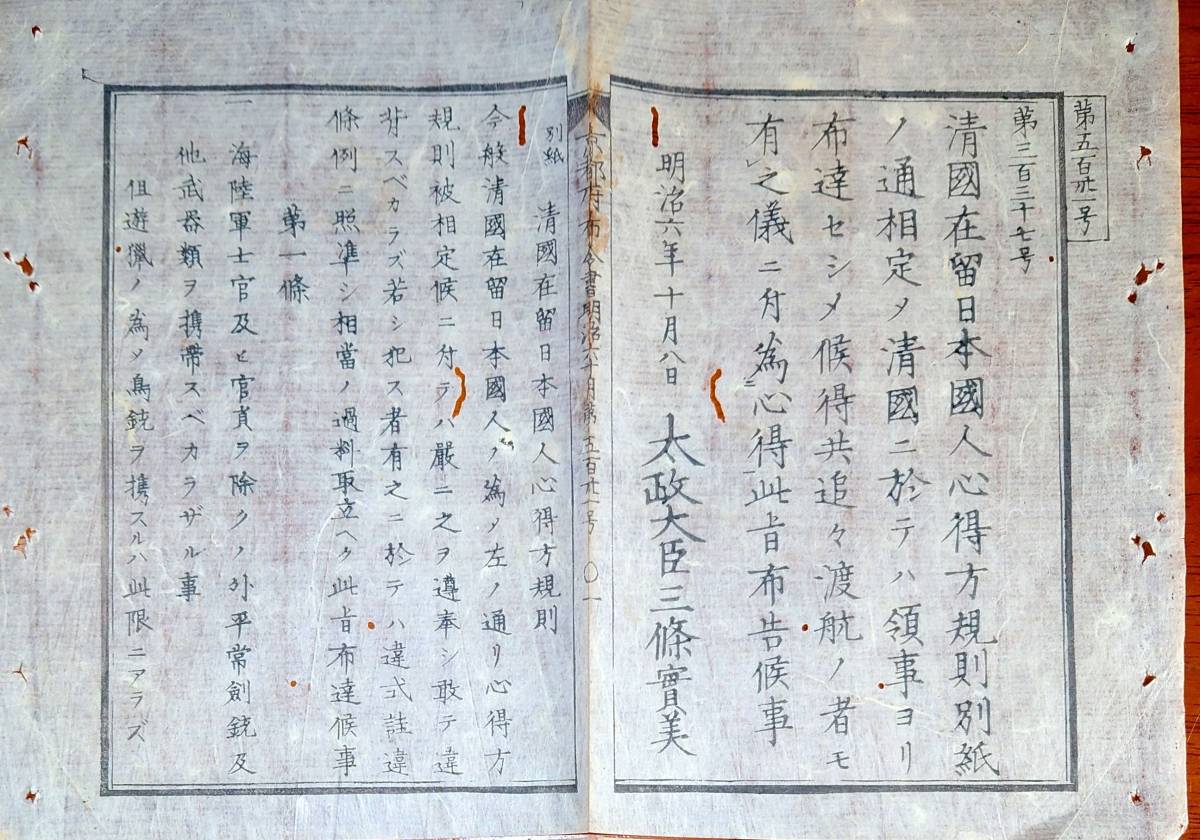 第五百卅一号
第三百三十七号
清國在留日本國人心得方規則別紙
ノ通相定メ清國ニ於テハ領事ヨリ
布達セシメ候得共追々渡航ノ者モ
有之儀ニ付為心得此旨布告候事
明治六年十月八日 太政大臣三條實美
京都府布令書明治六十月第五百卅一号 〇一
別紙 清國在留日本國人心得方規則
今般清國在留日本國人ノ為メ左ノ通リ心得方
規則被相定候ニ付テハ嚴ニ之ヲ遵奉シ敢テ違
背スベカラズ若シ犯ス者有之ニ於テハ違式詿違
條例ニ照準シ相當ノ過料取立ヘク此旨布達候事
第一條
一 海陸軍士官及ヒ官員ヲ除クノ外平常劍銃及
他武器類ヲ携帶スベカラザル事
但遊獵ノ為メ鳥銃ヲ携スルハ此限ニアラズ